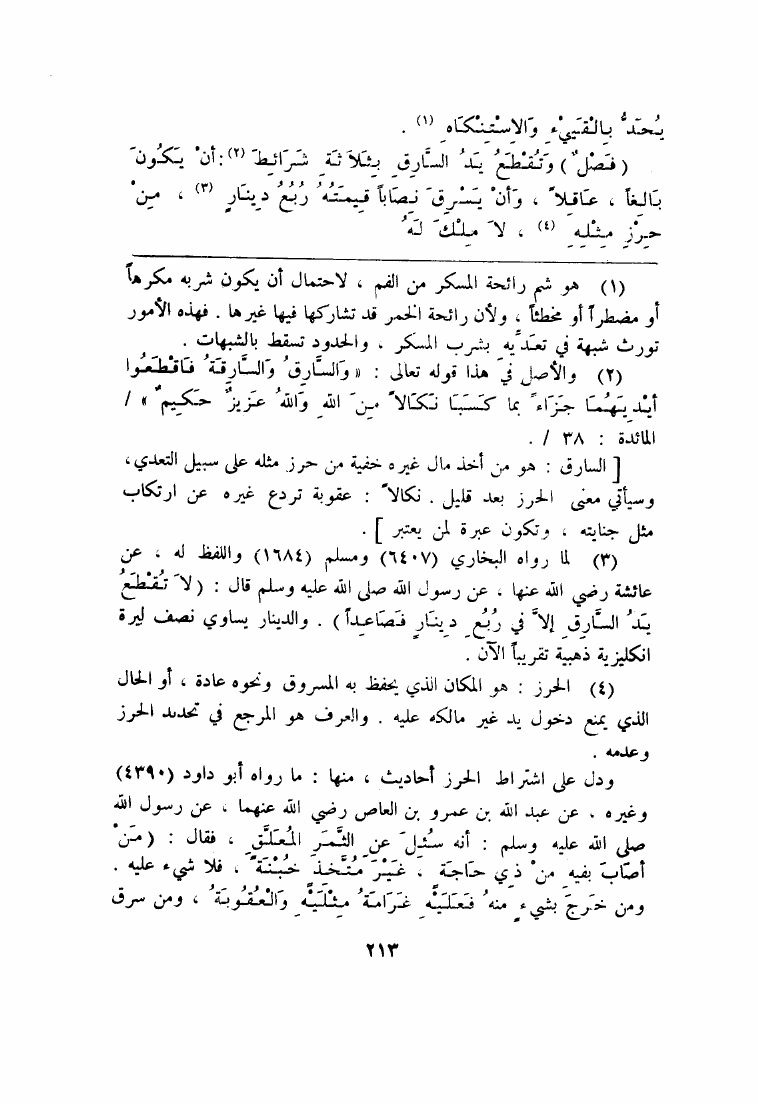 يُحَدُّ بِالْقَيْءِ وَالاِسْتِنْكَاهِ (١) .
( فَصْلٌ ) وَتُقْطَعُ يَدُ السَّارِقِ بِثَلاَثَةِ شَرَائِطَ (٢) : أَنْ يَكُونَ
بَالِغاً ، عَاقِلاً ، وَأَنْ يَسْرِقَ نِصَاباً قِيمَتُهُ رُبُعُ دِينَارٍ (٣) ، مِنْ
حِرْزِ مِثْلِهِ (٤) ، لاَ مِلْكَ لَهُ
(١) هو شم رائحة المسكر من الفم ، لاحتمال أن يكون شربه مكرهاً
أو مضطراً أو مخطئاً ، ولأن رائحة الخمر قد تشاركها فيها غيرها . فهذه الأمور
تورث شبهة في تعَدِّيه بشرب المسكر ، والحدود تسقط بالشبهات .
(٢) والأصل في هذا قوله تعالى : « وَالسَّارِقُ وَالسَّارِقَةُ فَاقْطَعُوا
أَيْدِيَهُمَا جَزَاءً بما كَسَبَا نَكَالاً مِنَ اللهِ وَاللهُ عَزِيزٌ حَكِيمٌ » /
المائدة : ٣٨ / .
[ السارق : هو من أخذ مال غيره خفية من حرز مثله على سبيل التعدي ،
وسيأتي معنى الحرز بعد قليل . نكالاً : عقوبة تردع غيره عن ارتكاب
مثل جنايته ، وتكون عبرة لمن يعتبر ] .
(٣) لما رواه البخاري (٦٤٠٧) ومسلم (١٦٨٤) واللفظ له ، عن
عائشة رضي الله عنها ، عن رسول الله صلى الله عليه وسلم قال : ( لاَ تُقْطَعُ
يَدُ السَّارِقِ إلاَّ في رُبُعِ دِينَارٍ فَصَاعِداً ) . والدينار يساوي نصف ليرة
انكليزية ذهبية تقريباً الآن .
(٤) الحرز : هو المكان الذي يحفظ به المسروق ونحوه عادة ، أو الحال
الذي يمنع دخول يد غير مالكه عليه . والعرف هو المرجع في تحديد الحرز
وعدمه .
ودل على اشتراط الحرز أحاديث ، منها : ما رواه أبو داود (٤٣٩٠)
وغيره ، عن عبد الله بن عمرو بن العاص رضي الله عنهما ، عن رسول الله
صلى الله عليه وسلم : أنه سُئِلَ عنِ الثَّمَرِ المُعَلَّقِ ، فقال : ( مَنْ
أصَابَ بفِيهِ مِنْ ذِي حَاجَةٍ ، غَيْرَ مُتَّخِذٍ خُبْنَةً ، فلا شيء عليه .
ومن خَرَجَ بشيءٍ منهُ فَعَلَيْهِ غَرَامَةُ مِثْلَيْهِ وَالْعُقُوبَةُ ، ومن سرق
٢١٣